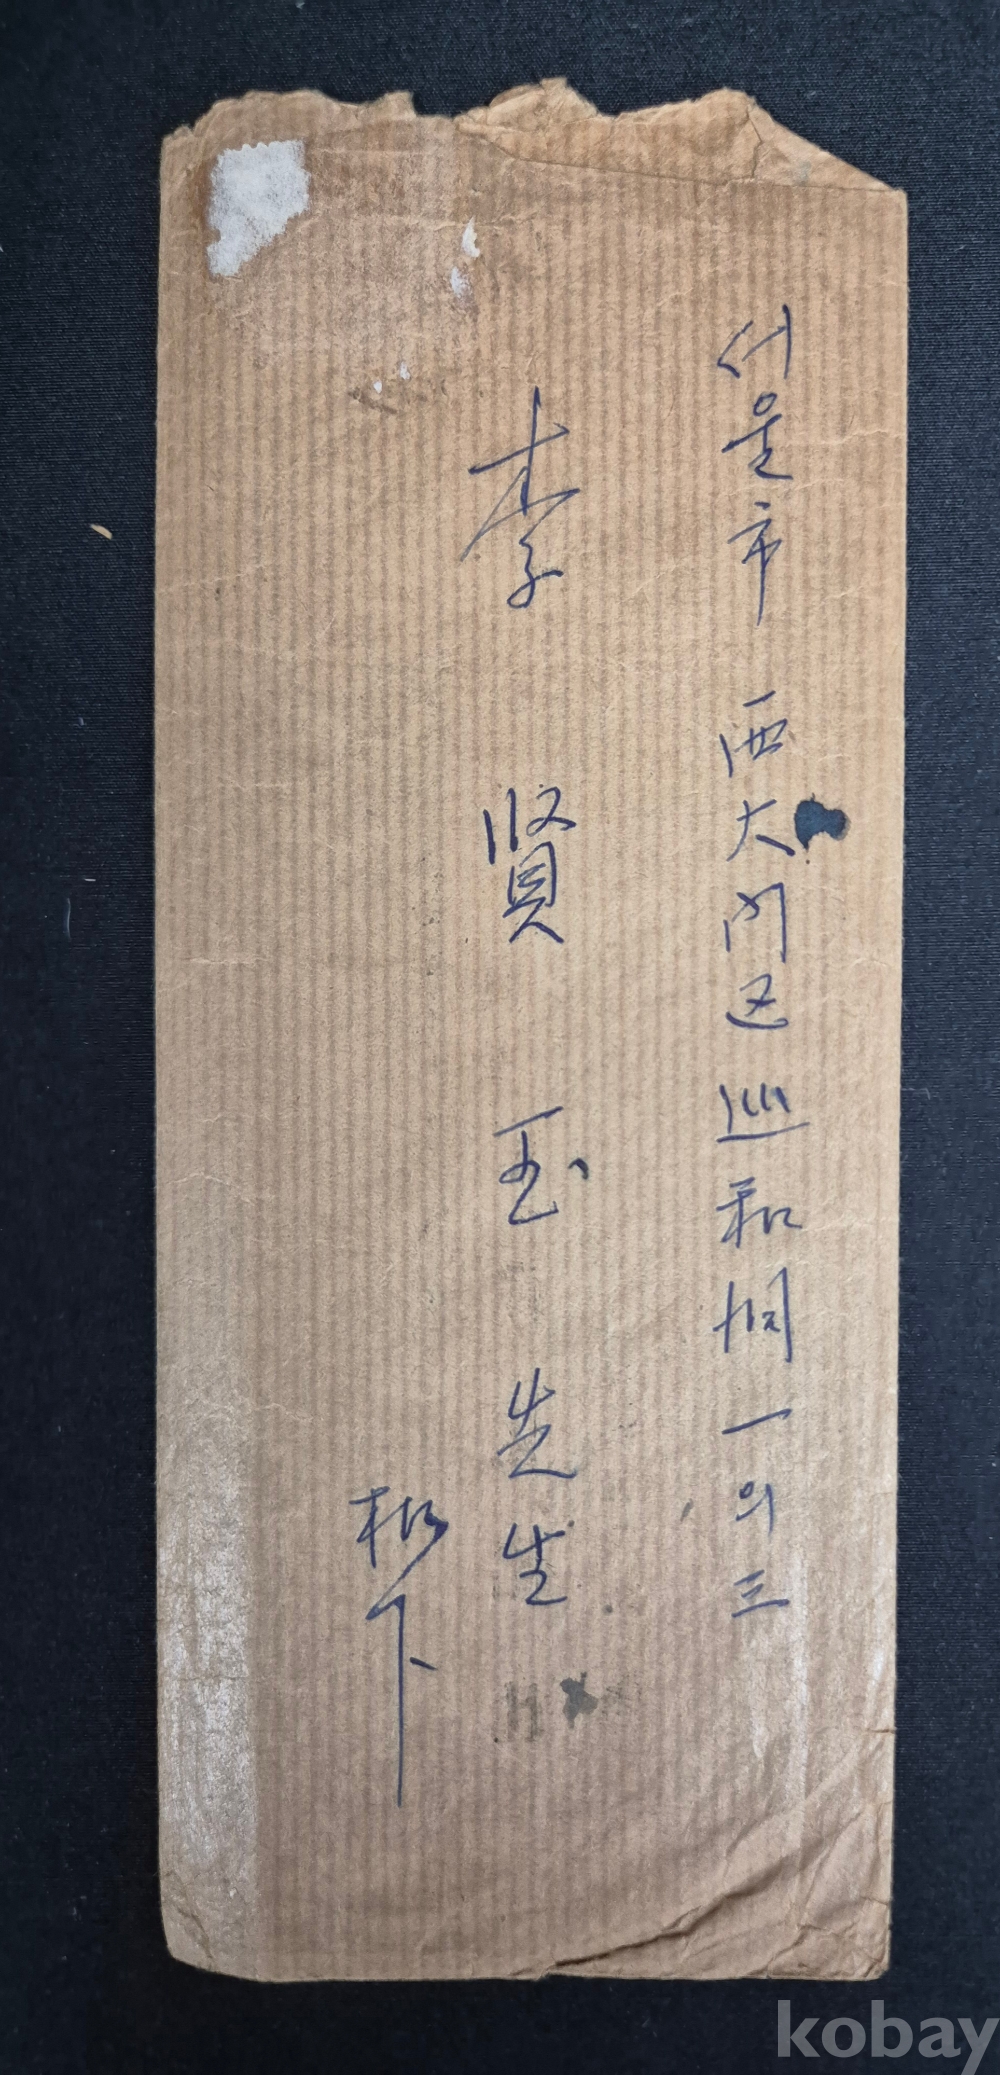 서울市 西大门区 巡和洞 一의三
李賢玉 先生
机下
kobay